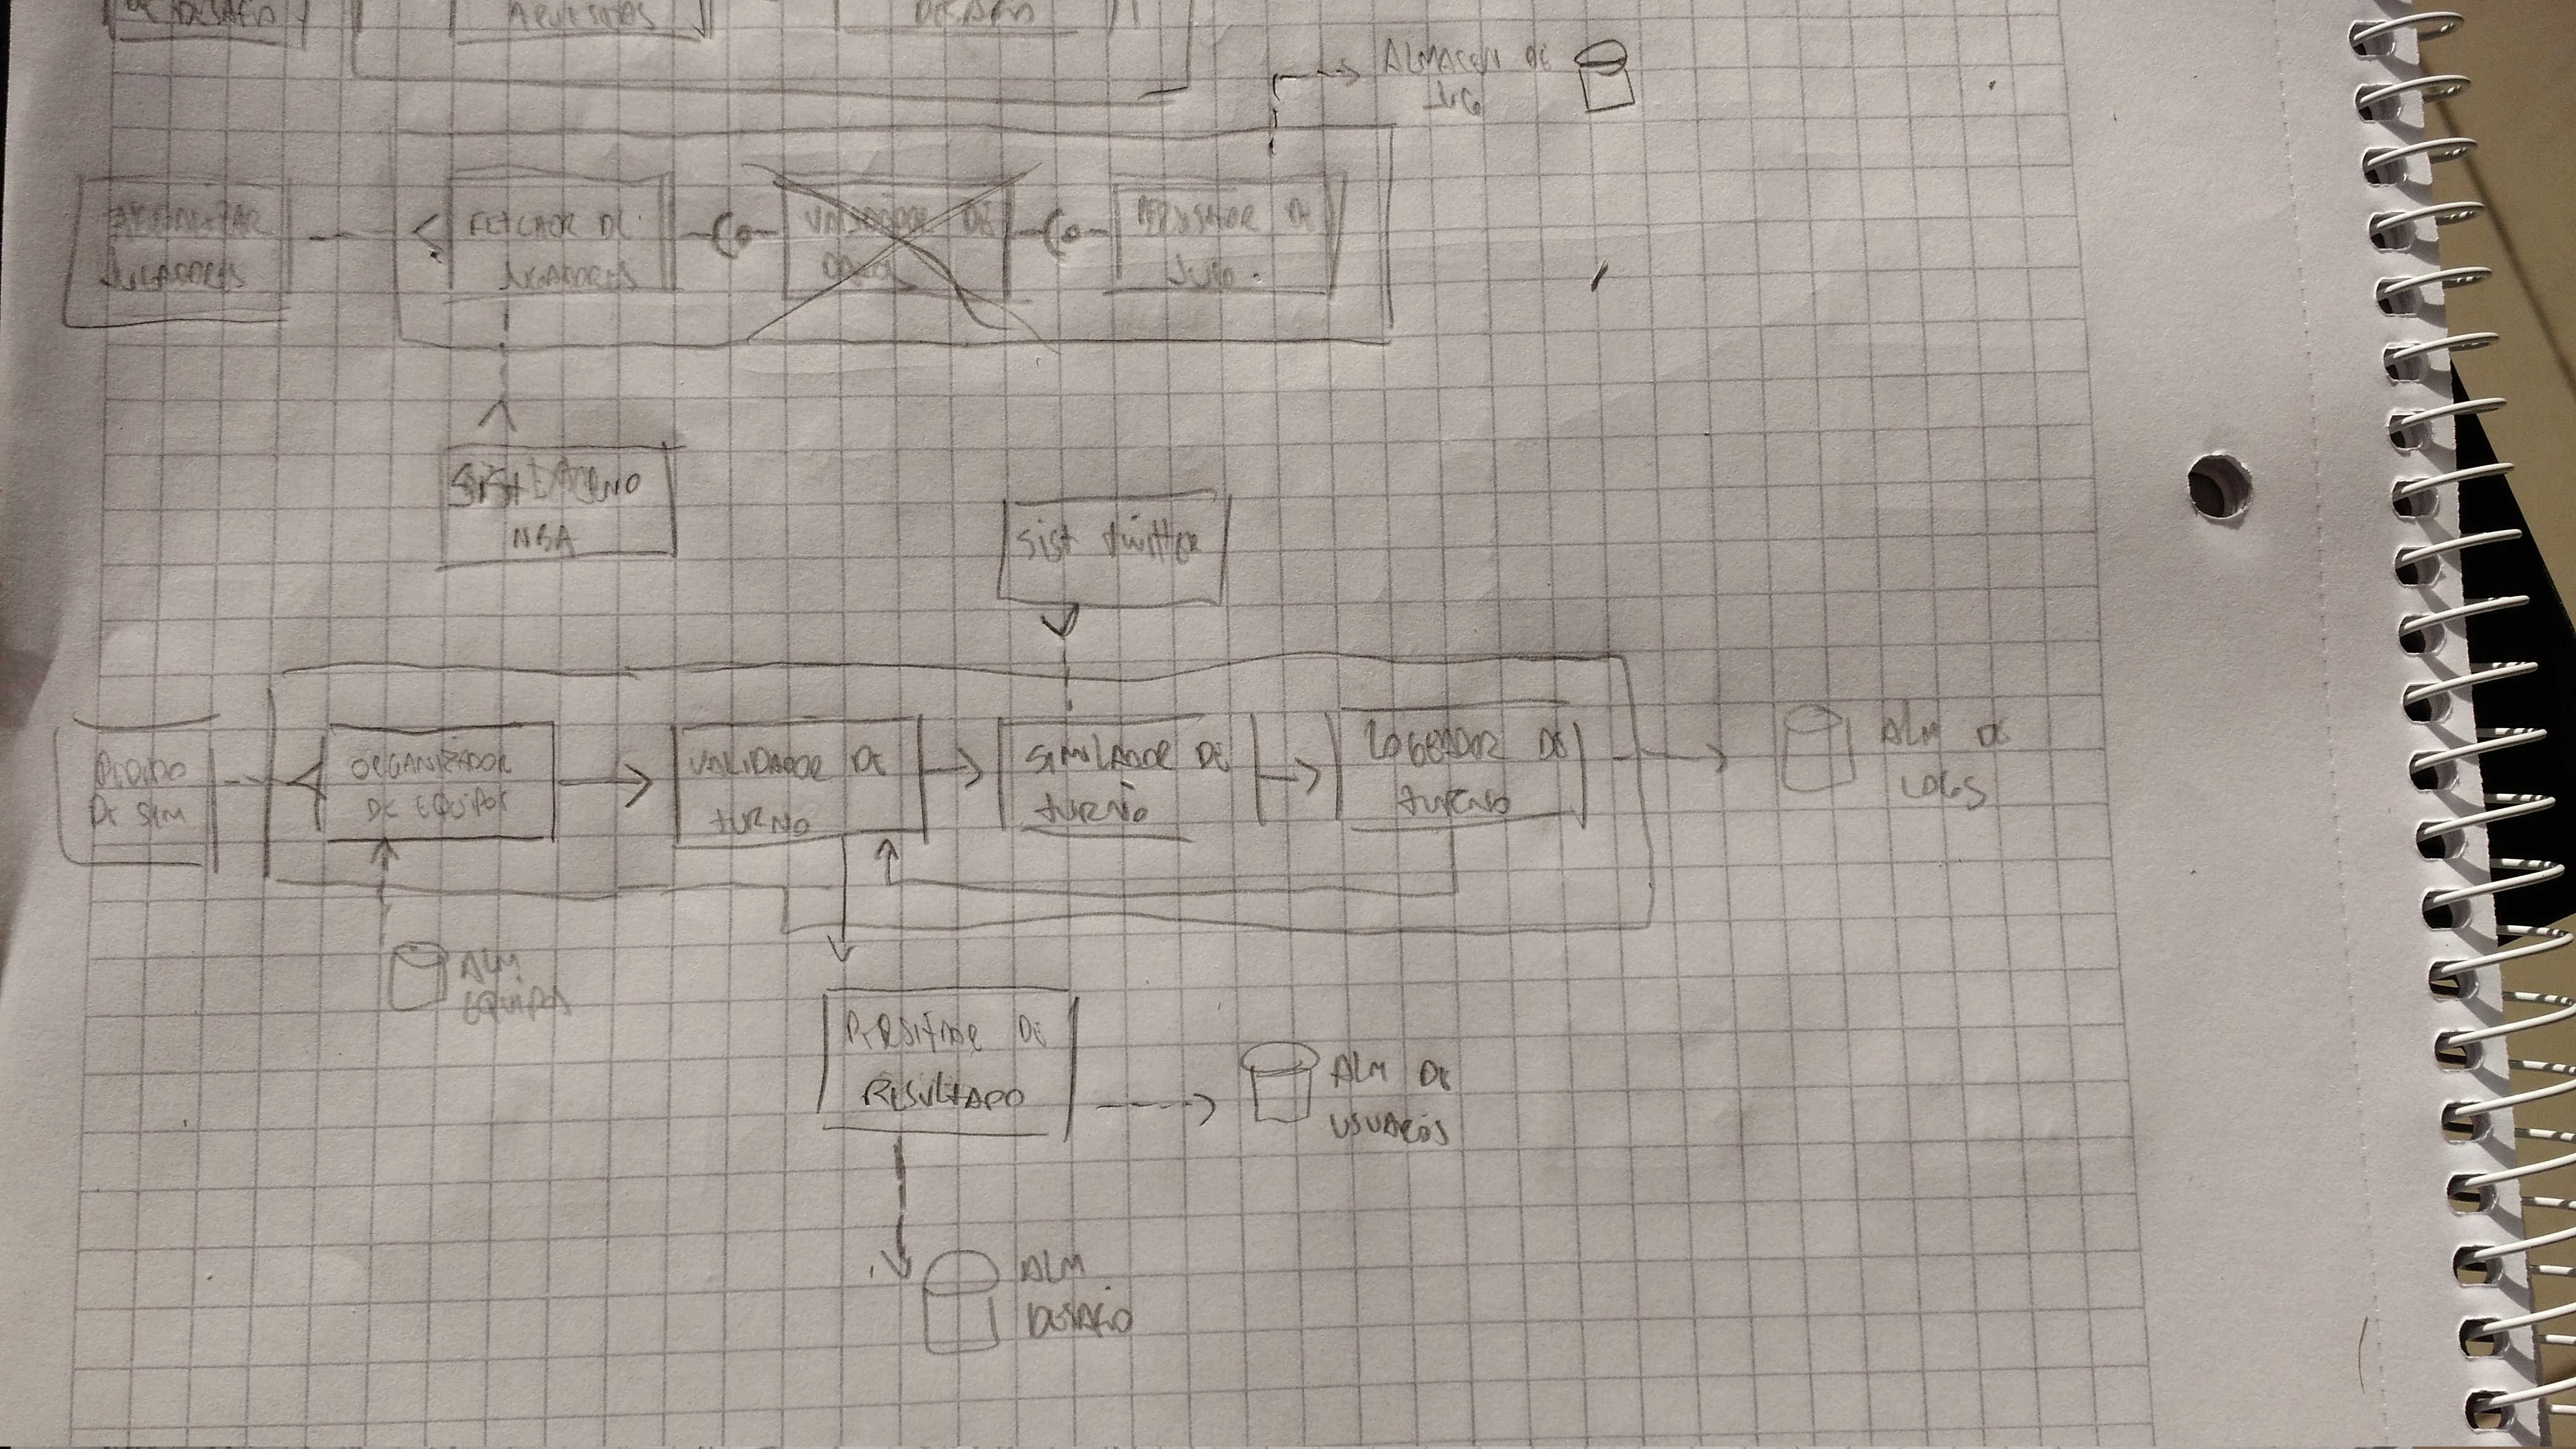 DE DESAFIO
DESAFIO
ALMACEN DE
JUG
JUGADORES
FETCHER DE
JUGADORES
VALIDADOR DE
DATOS
DE
SIST EXTERNO
NBA
Sist twitter
PEDIDO
DE SIM
ORGANIZADOR
DE EQUIPOS
VALIDADOR DE
turno
SIMULADOR DE
turno
LOGEADOR DE
turno
ALM DE
LOGS
ALM
EQUIPOS
PERSITIDOR DE
RESULTADO
ALM DE
USUARIOS
ALM
DESAFIO